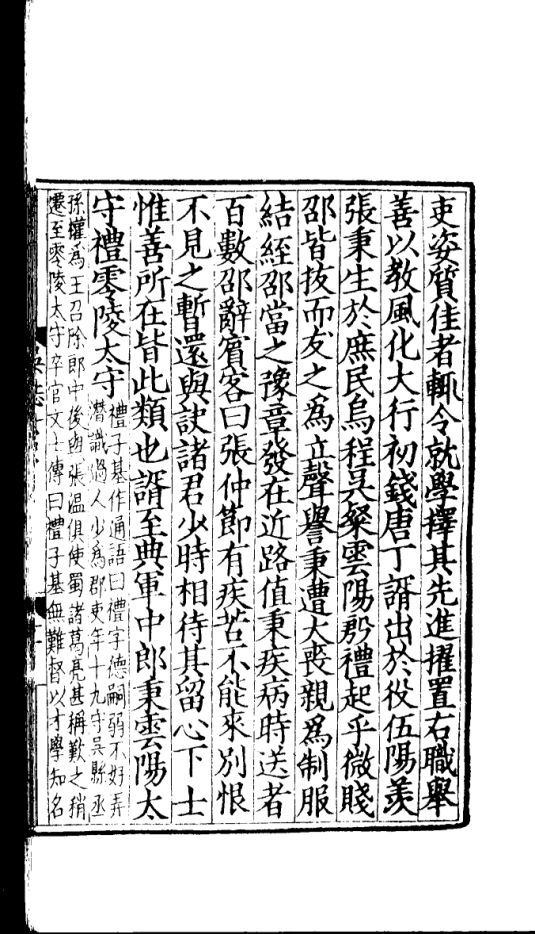 吏姿質佳者輒令就學擇其先進擢置右職舉
善以教風化大行初錢唐丁諝出於役伍陽羨
張秉生於庶民烏程吳粲雲陽殷禮起乎微賤
邵皆拔而友之為立聲譽秉遭大喪親為制服
結絰邵當之豫章發在近路值秉疾病時送者
百數邵辭賓客曰張仲節有疾苦不能來別恨
不見之暫還與訣諸君少時相待其留心下士
惟善所在皆此類也諝至典軍中郎秉雲陽太
守禮零陵太守
禮子基作通語曰禮字德嗣弱不好弄
潛識過人少為郡吏年十九守吳縣丞
孫權為王召除郎中後與張溫俱使蜀諸葛亮甚稱歎之稍
遷至零陵太守卒官文士傳曰禮子基無難督以才學知名